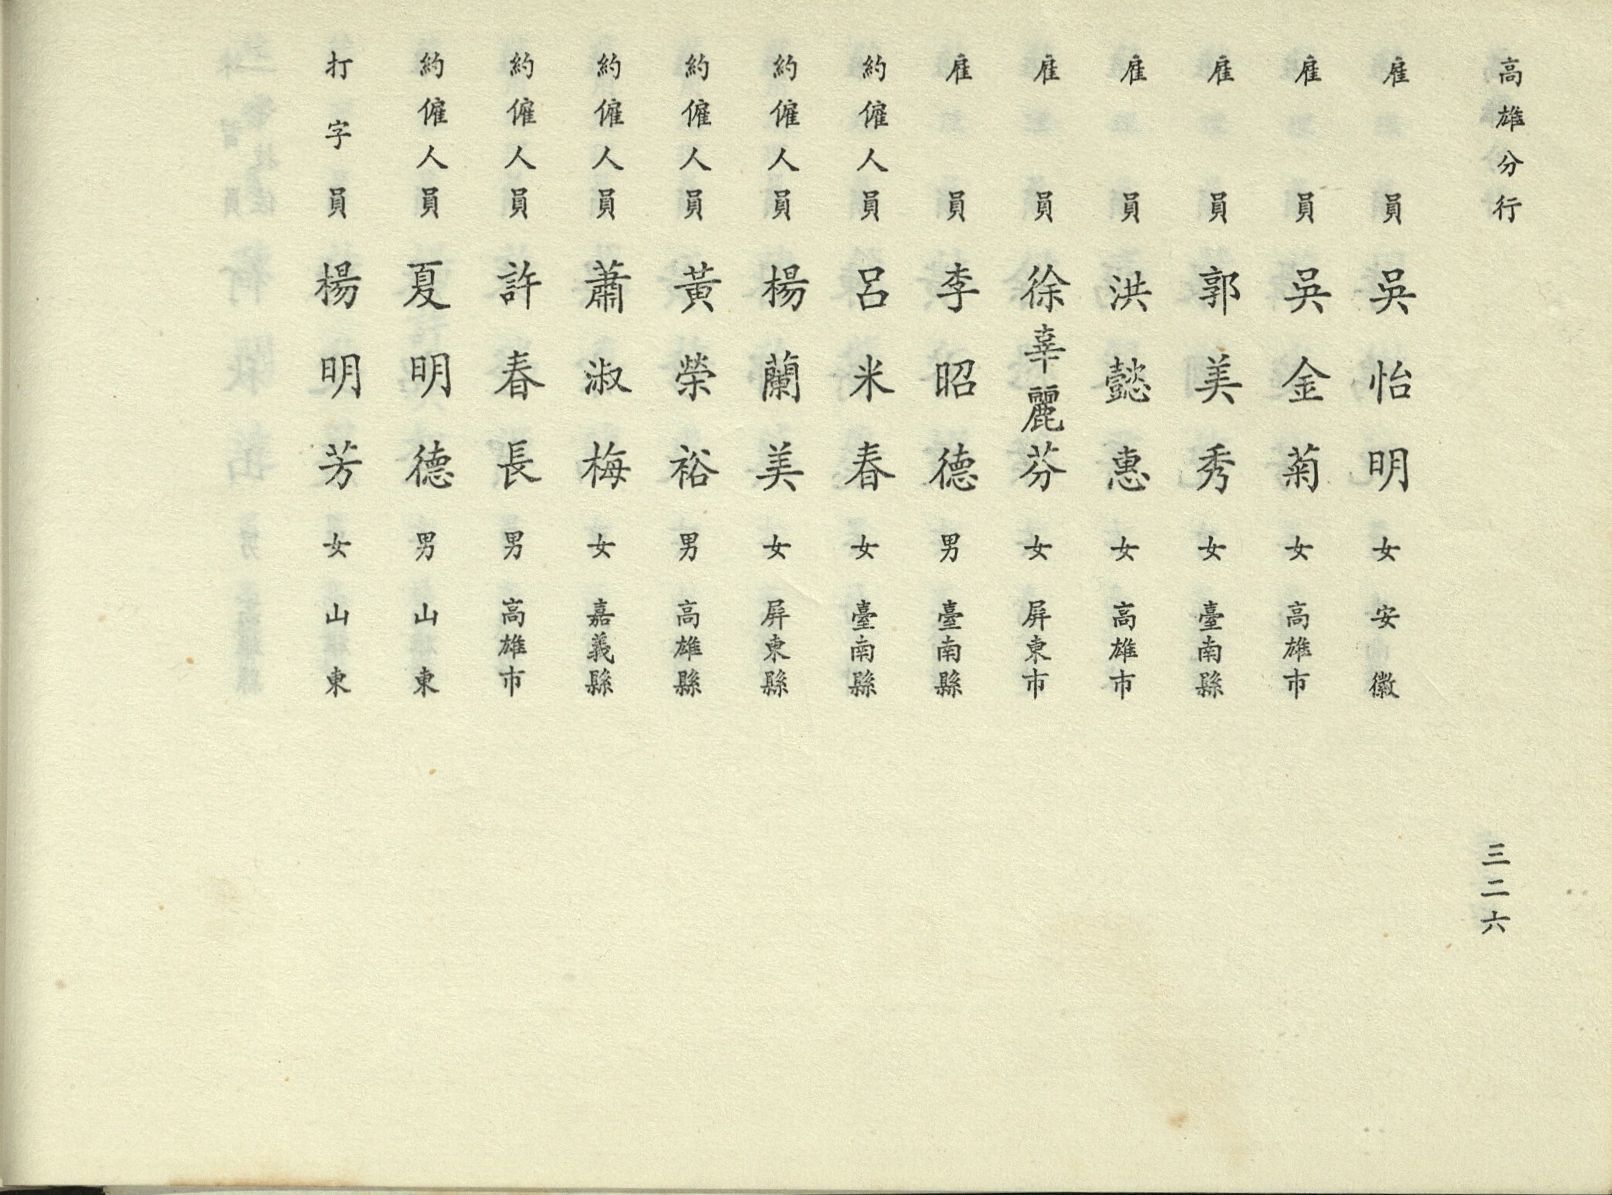 高雄分行
雇員 吳怡明 女 安徽
雇員 吳金菊 女 高雄市
雇員 郭美秀 女 臺南縣
雇員 洪懿惠 女 高雄市
雇員 徐辜麗芬 女 屏東市
雇員 李昭德 男 臺南縣
約僱人員 呂米春 女 臺南縣
約僱人員 楊蘭美 女 屏東縣
約僱人員 黃榮裕 男 高雄縣
約僱人員 蕭淑梅 女 嘉義縣
約僱人員 許春長 男 高雄市
約僱人員 夏明德 男 山東
打字員 楊明芳 女 山東
三二六